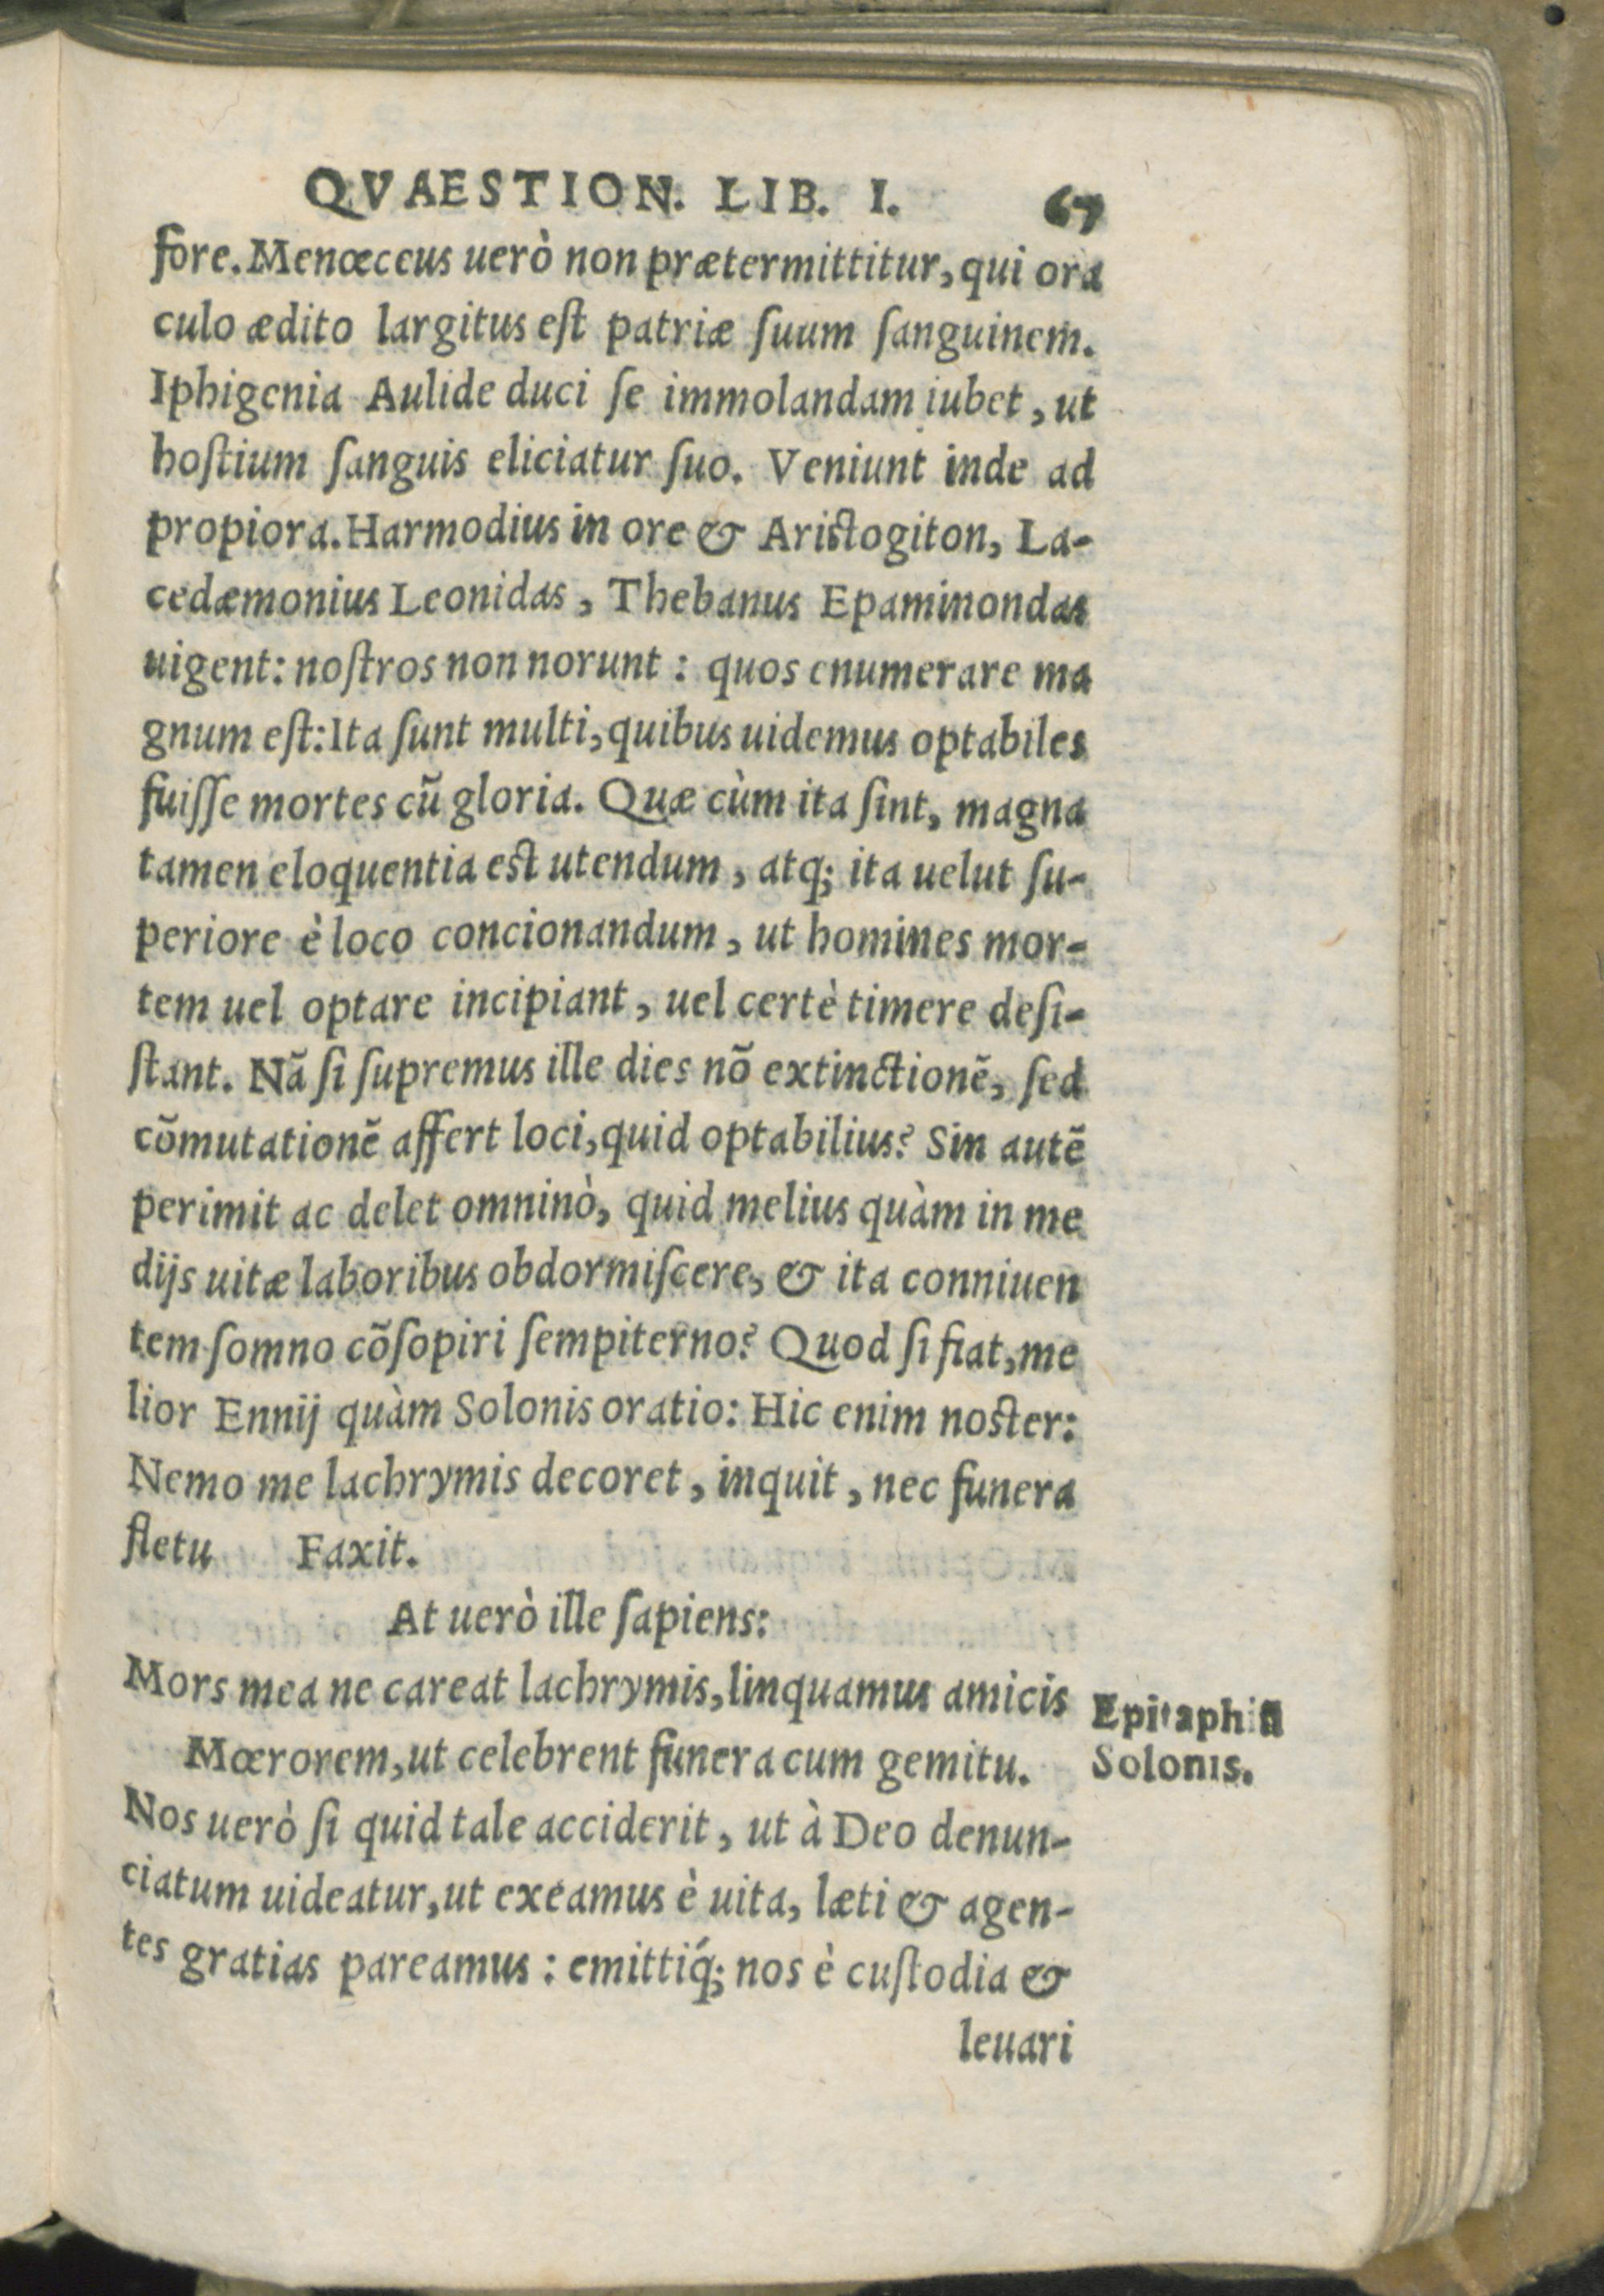 QVAESTION. LIB. I. 67
fore. Menœceus uerò non prætermittitur, qui ora
culo ædito largitus eſt patriæ ſuum ſanguinem.
Iphigenia Aulide duci ſe immolandam iubet, ut
hoſtium ſanguis eliciatur ſuo. Veniunt inde ad
propiora. Harmodius in ore & Ariſtogiton, La-
cedæmonius Leonidas, Thebanus Epaminondas
uigent: noſtros non norunt: quos enumerare ma
gnum eſt: Ita ſunt multi, quibus uidemus optabiles
fuiſſe mortes cũ gloria. Quæ cùm ita ſint, magna
tamen eloquentia eſt utendum, atq; ita uelut ſu-
periore è loco concionandum, ut homines mor-
tem uel optare incipiant, uel certè timere deſi-
ſtant. Nã ſi ſupremus ille dies nõ extinctionẽ, ſed
cõmutationẽ affert loci, quid optabilius? Sin autẽ
perimit ac delet omninò, quid melius quàm in me
dijs uitæ laboribus obdormiſcere, & ita conniuen
tem ſomno cõſopiri ſempiterno? Quod ſi fiat, me
lior Ennij quàm Solonis oratio: Hic enim noſter:
Nemo me lachrymis decoret, inquit, nec funera
fletu Faxit.
At uerò ille ſapiens:
Mors mea ne careat lachrymis, linquamus amicis
Mœrorem, ut celebrent funera cum gemitu.
Epitaphiũ
Solonis.
Nos uerò ſi quid tale acciderit, ut à Deo denun-
ciatum uideatur, ut exeamus è uita, læti & agen-
tes gratias pareamus: emittiq́; nos è cuſtodia &
leuari